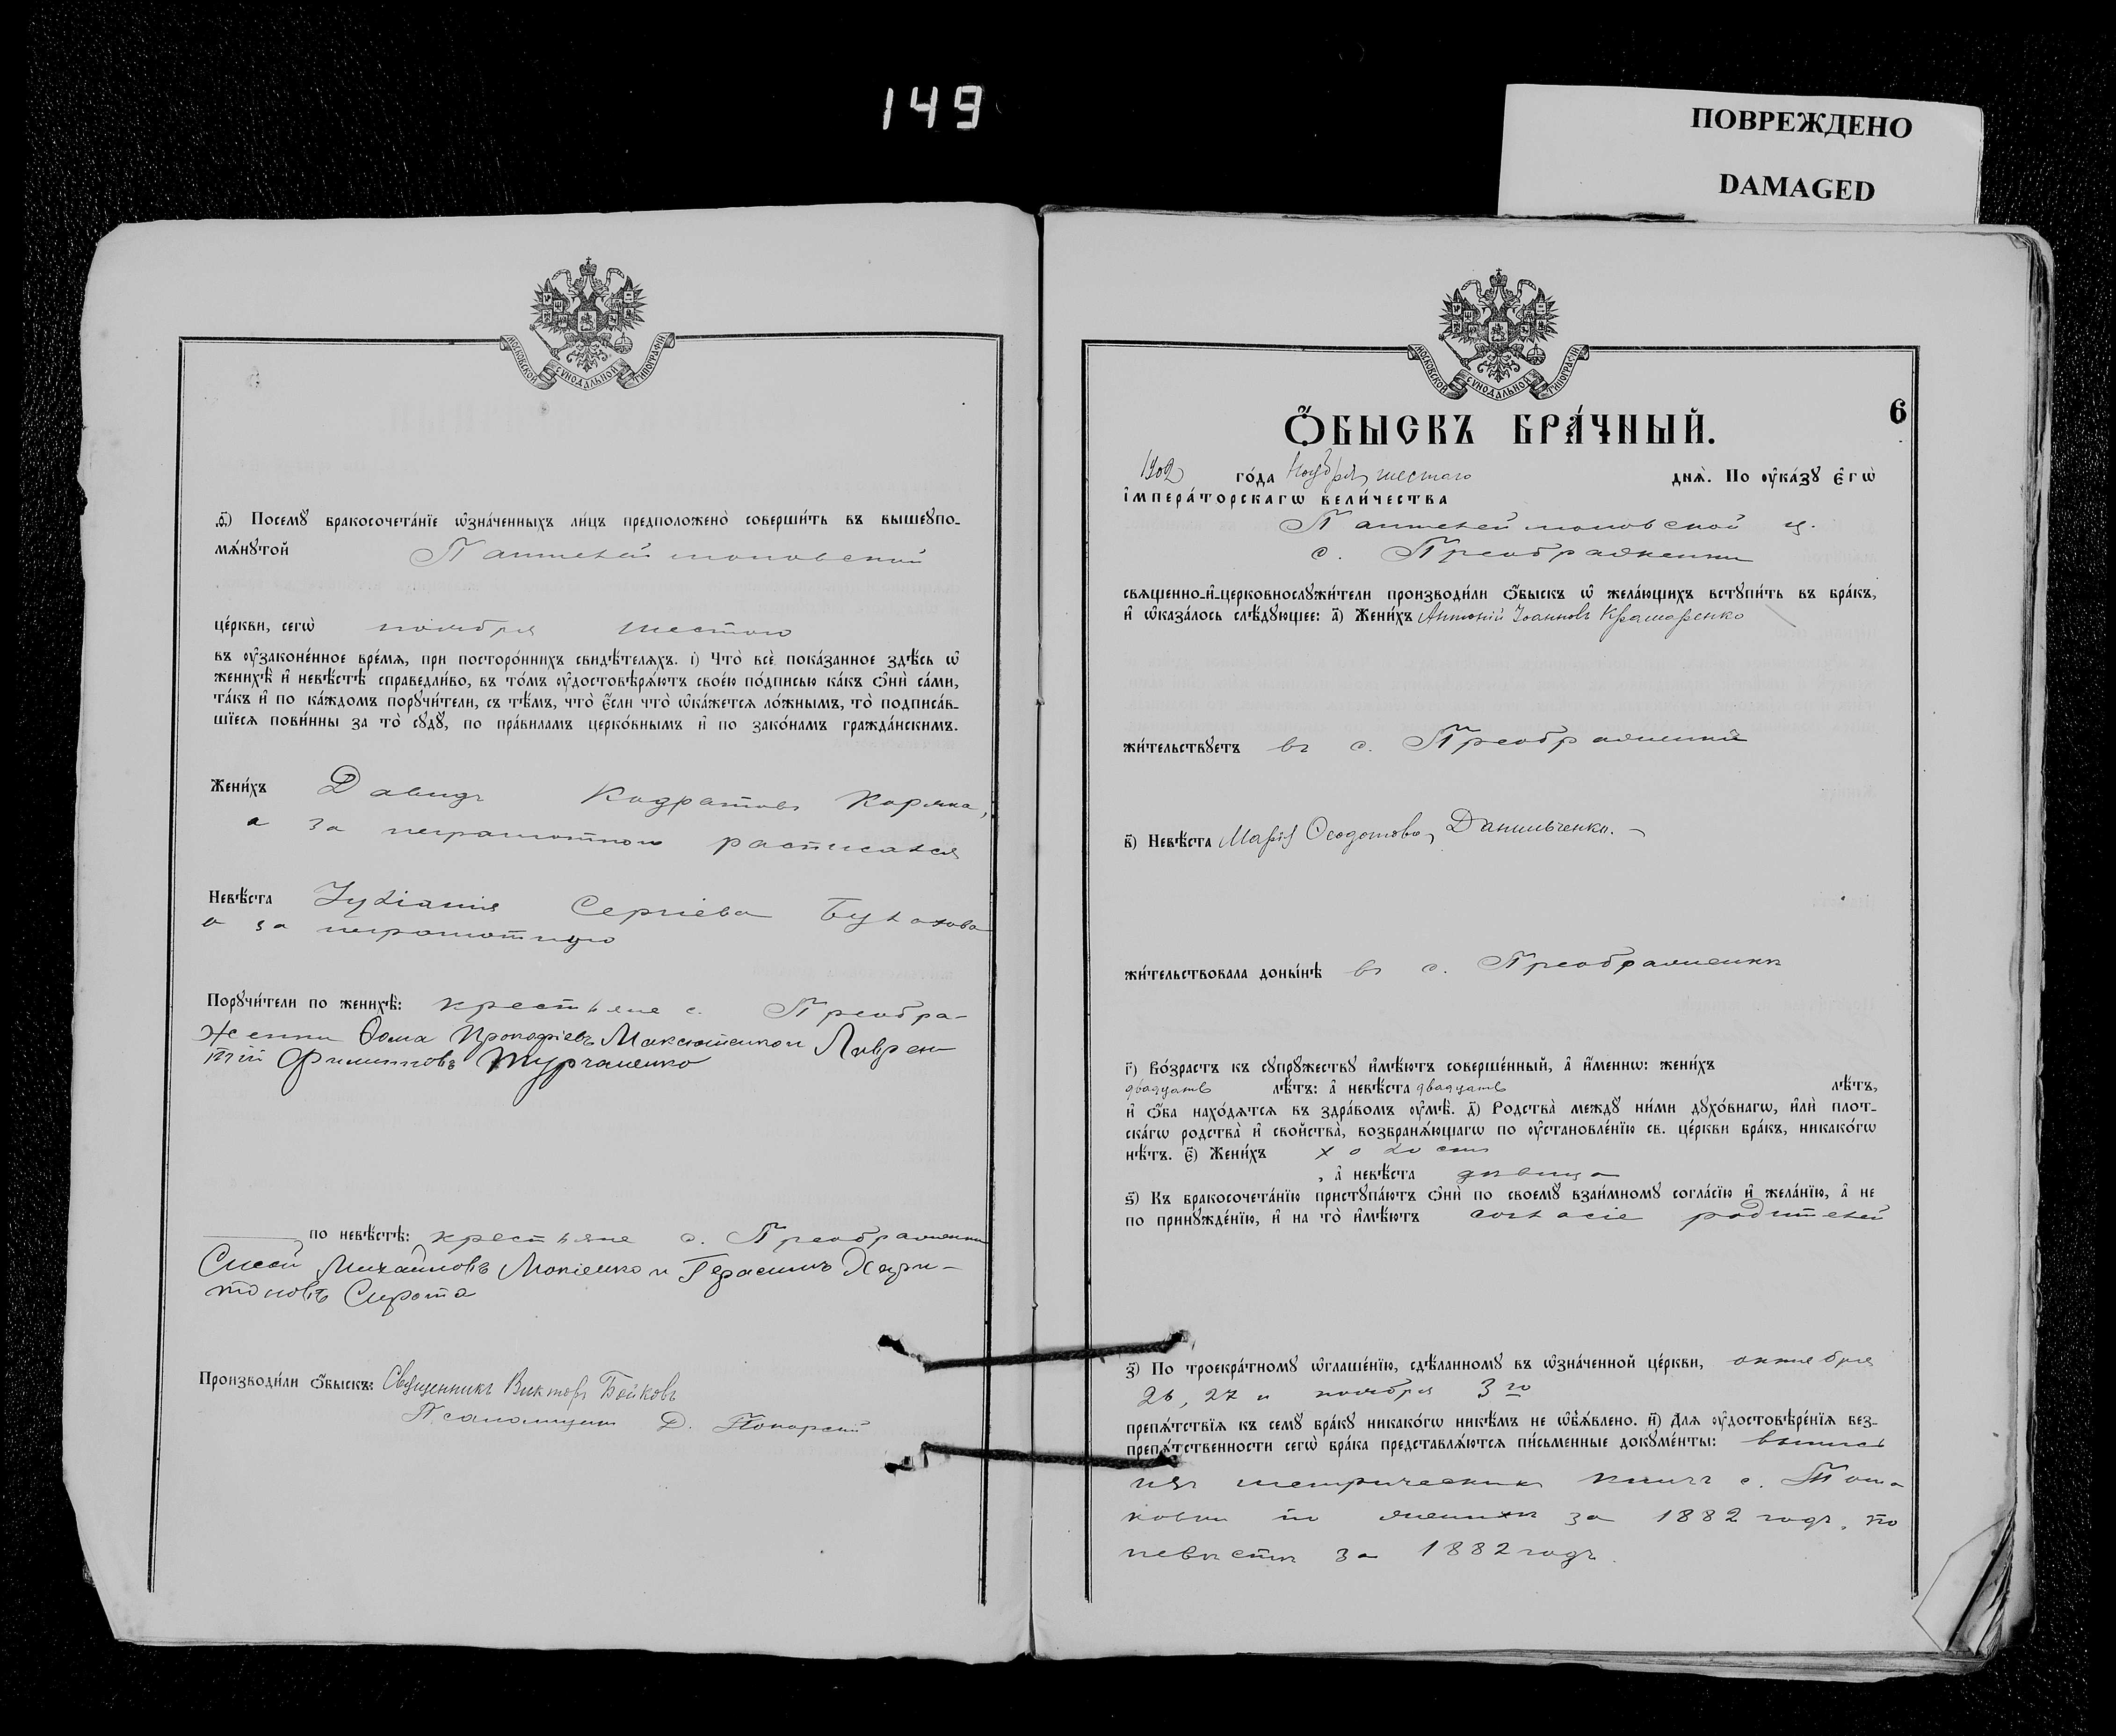 149
ПОВРЕЖДЕНО
DAMAGED
МОСКОВСКОЙ СѴНОДАЛЬНОЙ ТИПОГРАФІИ
ѳ҃) Посемꙋ бракосочета́нїе ѡ҆зна́ченныхъ ли́цъ предположено̀ соверши́ть въ вышеꙋпо-
мѧ́нꙋтой Пантелеймоновской
це́ркви, сегѡ̀ ноября шестого
въ ᲂу҆законе́нное вре́мѧ, при посторо́ннихъ свидѣ́телѧхъ. і҃) Что̀ всѐ пока́занное здѣ́сь ѡ҆
женихѣ̀ и҆ невѣ́стѣ справедли́во, въ то́мъ ᲂу҆достовѣрѧ́ютъ свое́ю по́дписью ка́къ ѻ҆нѝ са́ми,
та́къ и҆ по ка́ждомъ порꙋчи́тели, съ тѣ́мъ, что̀ є҆́сли что̀ ѡ҆ка́жетсѧ ло́жнымъ, то̀ подписа́в-
шїесѧ пови́нны за то̀ сꙋдꙋ̀, по пра́виламъ церко́внымъ и҆ по зако́намъ гражда́нскимъ.
Жени́хъ Давидъ Кодратовъ Коряка,
а за неграмотного расписался
Невѣ́ста Іуліанія Сергіева Булахова
а за неграмотную
Порꙋчи́тели по женихѣ̀: крестьяне с. Преобра-
женки Ѳома Прокофіевъ Максютенко и Лаврен
тій Филипповъ Турчаненко
по невѣ́стѣ: крестьяне с. Преображенки
Сисой Михайловъ Мокіенко и Герасимъ Хари-
тоновъ Сирота
Производи́ли ѻ҆́быскъ: Священникъ Викторъ Бойковъ
Псаломщикъ Д.
МОСКОВСКОЙ СѴНОДАЛЬНОЙ ТИПОГРАФІИ
6
Ѻ҆́БЫСКЪ БРА́ЧНЫЙ.
1902 го́да Ноября шестого днѧ̀. По ᲂу҆ка́зꙋ є҆гѡ̀
і҆мпера́торскагѡ вели́чества
Пантелеймоновской ц.
с. Преображенки
свѧщенно-и҆-церковнослꙋжи́тели производи́ли ѻ҆́быскъ ѡ҆ жела́ющихъ встꙋпи́ть въ бра́къ,
и҆ ѡ҆каза́лось слѣ́дꙋющее: а҃) Жени́хъ Антоній Іоанновъ Крамаренко
жи́тельствꙋетъ въ с. Преображенкѣ
в҃) Невѣ́ста Марія Ѳеодотова Данильченко. —
жи́тельствовала доны́нѣ въ с. Преображенкѣ
г҃) Во́зрастъ къ сꙋпрꙋ́жествꙋ и҆мѣ́ютъ соверше́нный, а҆ и҆́менно: жени́хъ
двадцать лѣ́тъ: а҆ невѣ́ста двадцать лѣ́тъ,
и҆ ѻ҆́ба нахо́дѧтсѧ въ здра́вомъ ᲂу҆мѣ̀. д҃) Родства̀ междꙋ̀ ни́ми дꙋхо́внагѡ, и҆лѝ плот-
ска́гѡ родства̀ и҆ свойства̀, возбранѧ́ющагѡ по ᲂу҆становле́нїю св. це́ркви бра́къ, никако́гѡ
нѣ́тъ. є҃) Жени́хъ холостъ
, а҆ невѣ́ста дѣвица
ѕ҃) Къ бракосочета́нїю пристꙋпа́ютъ ѻ҆нѝ по своемꙋ̀ взаи́мномꙋ согла́сїю и҆ жела́нїю, а҆ не
по принꙋжде́нїю, и҆ на то̀ и҆мѣ́ютъ согласіе родителей
з҃) По троекра́тномꙋ ѡ҆глаше́нїю, сдѣ́ланномꙋ въ ѡ҆зна́ченной це́ркви, октября
26, 27 и ноября 3го
препѧ́тствїѧ къ семꙋ̀ бра́кꙋ никако́гѡ никѣ́мъ не ѡ҆б̾ѧ́влено. и҃) Длѧ ᲂу҆достовѣре́нїѧ без-
препѧ́тственности сегѡ̀ бра́ка представлѧ́ютсѧ пи́сьменные докꙋме́нты: выпись
изъ метрическихъ книгъ с. Тома-
ковки по женихѣ за 1882 годъ, по
невѣстѣ за 1882 годъ.